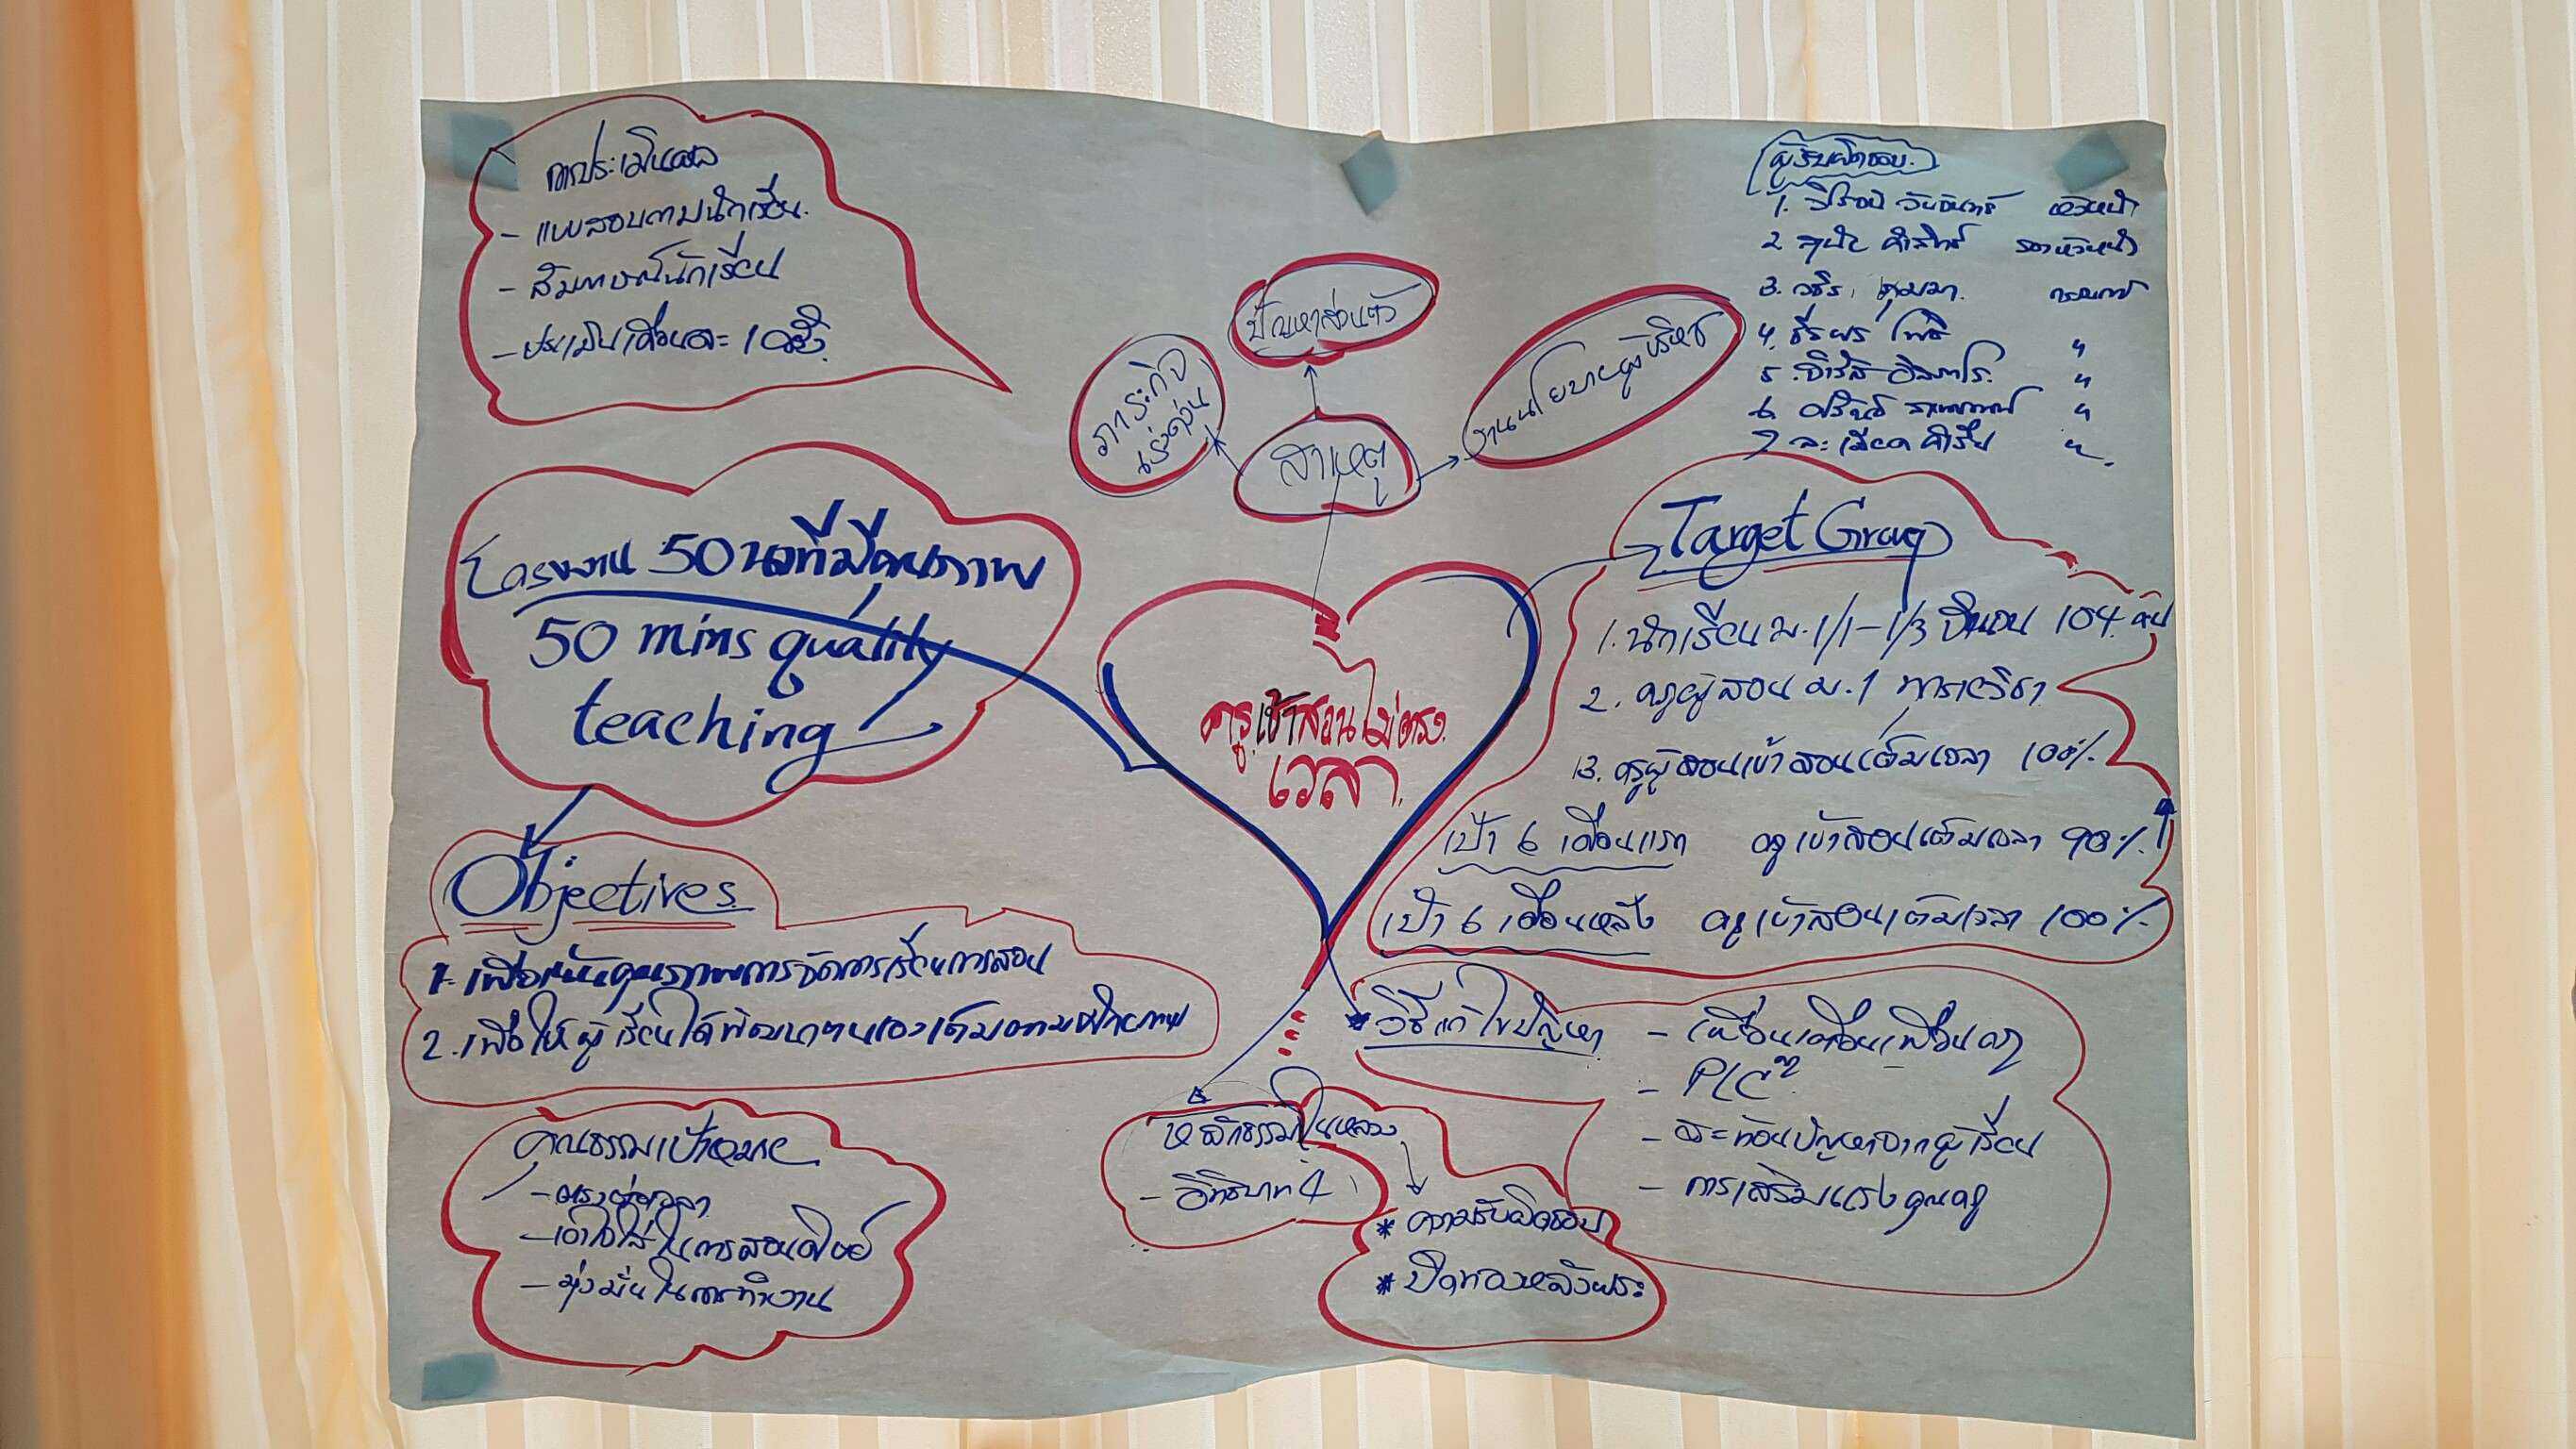 การประเมินผล
- แบบสอบถามนักเรียน
- สัมภาษณ์นักเรียน
- ประเมินเดือนละ 1 ครั้ง
ผู้รับผิดชอบ
1. หัวหน้า
2. รองหัวหน้า
3. กรรมการ
4. "
5. "
6. "
7. "
ปัญหาส่วนตัว
ภาระกิจ
เร่งด่วน
งานนโยบายผู้บริหาร
สาเหตุ
โครงงาน 50 นาทีมีคุณภาพ
50 mins quality
teaching
ครูเข้าสอนไม่ตรง
เวลา
Target Group
1. นักเรียน ม.1/1-1/3 จำนวน 104 คน
2. ครูผู้สอน ม.1 ทุกรายวิชา
3. ครูผู้สอนเข้าสอนเต็มเวลา 100%
เป้า 6 เดือนแรก ครูเข้าสอนเต็มเวลา 90%
เป้า 6 เดือนหลัง ครูเข้าสอนเต็มเวลา 100%
Objectives
1. เพื่อเน้นคุณภาพการจัดการเรียนการสอน
2. เพื่อให้ผู้เรียนได้พัฒนาตนเองเต็มตามศักยภาพ
คุณธรรมเป้าหมาย
- ตรงต่อเวลา
- เอาใจใส่ในการสอนศิษย์
- มุ่งมั่นในการทำงาน
หลักธรรม/ในหลวง
- อิทธิบาท 4
* ความรับผิดชอบ
* ปิดทองหลังพระ
* วิธีแก้ไขปัญหา
- เพื่อนเตือนเพื่อนครู
- PLC
- สะท้อนปัญหาจากผู้เรียน
- การเสริมแรงคุณครู